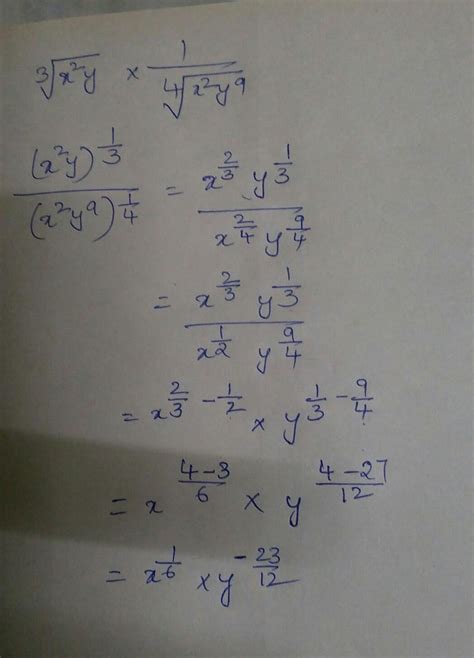 ∛(x²y) × 1/∜(x²y⁹)
(x²y)^(1/3) / (x²y⁹)^(1/4) = x^(2/3) y^(1/3) / x^(2/4) y^(9/4)
= x^(2/3) y^(1/3) / x^(1/2) y^(9/4)
= x^(2/3 - 1/2) × y^(1/3 - 9/4)
= x^((4-3)/6) × y^((4-27)/12)
= x^(1/6) × y^(-23/12)